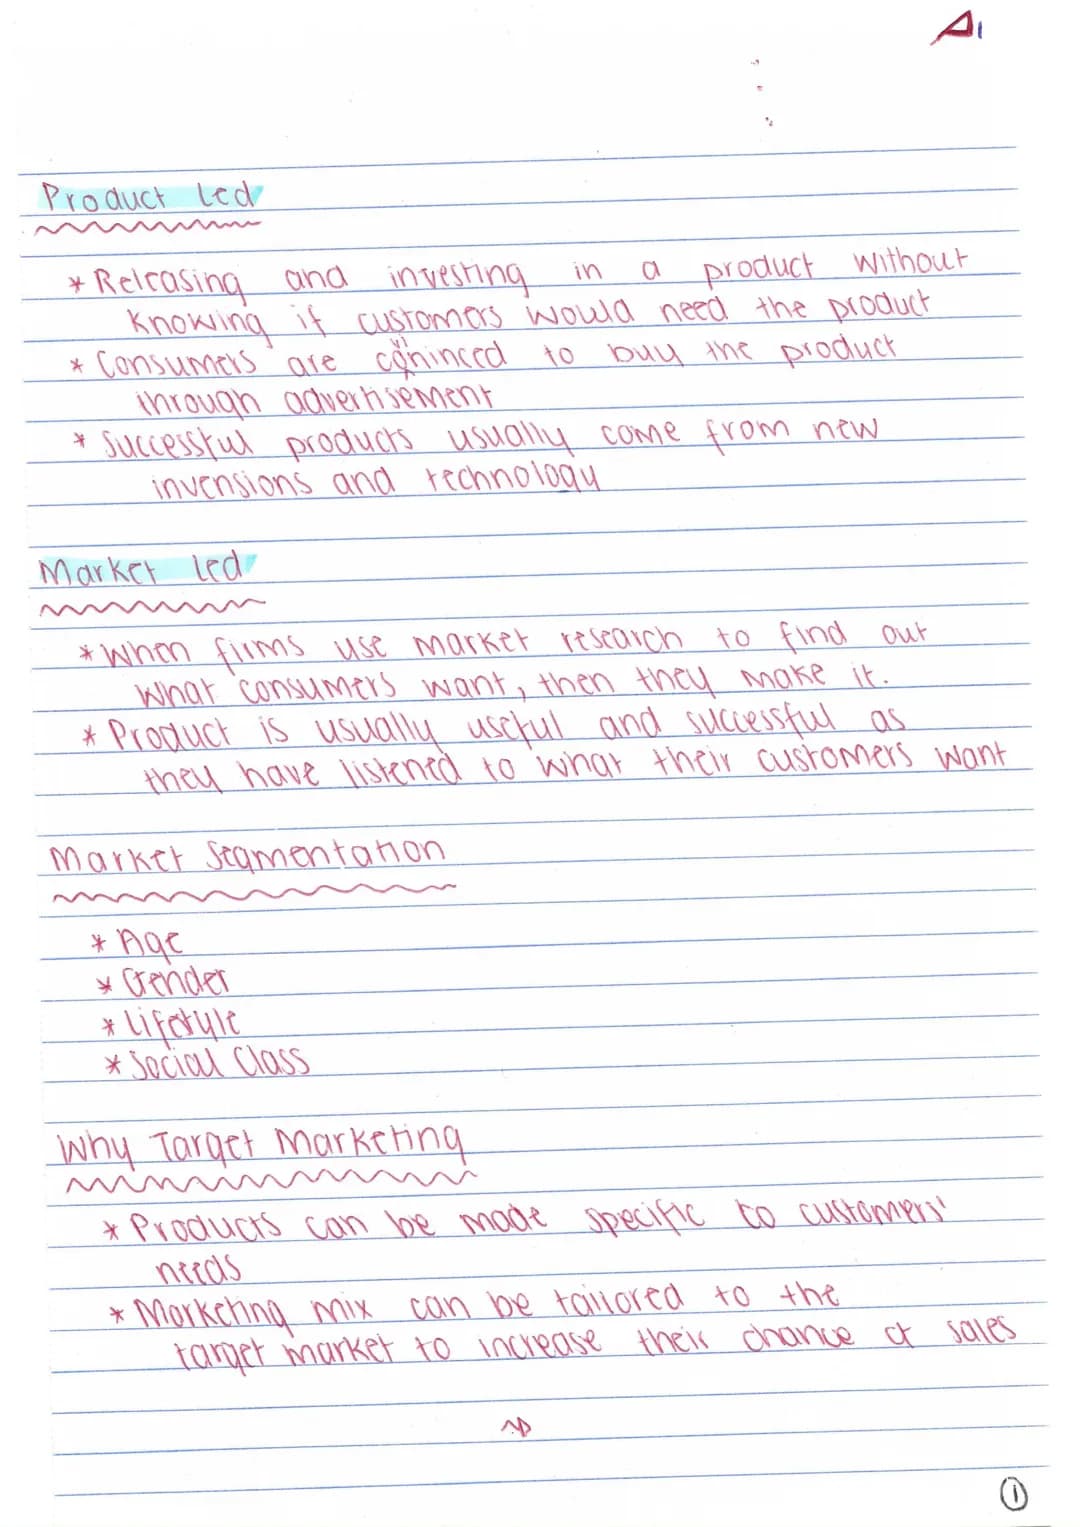 A1
Product led
* Releasing and investing in a product without
knowing if customers would need the product
* Consumers are convinced to buy the product
through advertisement
* Successful products usually come from new
invensions and technology
Market led
* When firms use market research to find out
what consumers want, then they make it.
* Product is usually useful and successful as
they have listened to what their customers want
Market Segmentation
* Age
* Gender
* Lifestyle
* Social Class
Why Target Marketing
* Products can be made specific to customers'
needs
* Marketing mix can be tailored to the
target market to increase their chance of sales
1